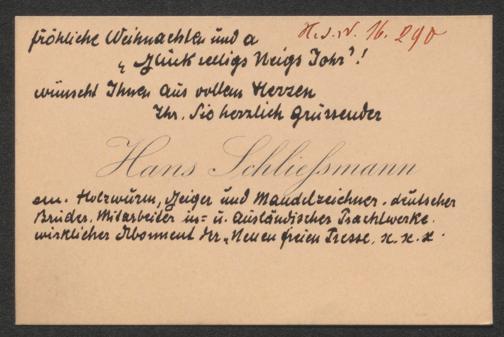 fröhliche Weihnachten und a
„Glückseeligs Neigs Johr"!
wünscht Ihnen aus vollem Herzen
Ihr, Sie herzlich Grüssender
Hans Schließmann
em. Holzwurm, Geiger und Mandelzeichner. deutscher
Bruder. Mitarbeiter in= u. Ausländischer Prachtwerke.
wirklicher Abonnent der „Neuen freien Presse, x. x. x.
H. I. N. 16.290